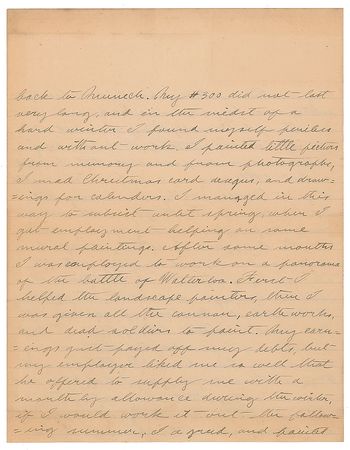 back to Munich. My #300 did not last
very long, and in the midst of a
hard winter I found myself peniless
and without work. I painted little pictures
from memory and from photographs,
I mad Christmas card desgns, and draw-
=ings for calenders. I managed in this
way to subsist until spring, when I
got employment helping on some
mural paintings. After some months
I was employed to work on a panorama
of the battle of Waterloo. First I
helped the landscape painters, then I
was given all the cannon, earth works,
and dead soldiers to paint. My earn-
=ings just payed off my debts, but
my employer liked me so well that
he offered to supply me with a
monthly allowance during the winter,
if I would work it out the follow-
=ing summer, I agreed, and painted